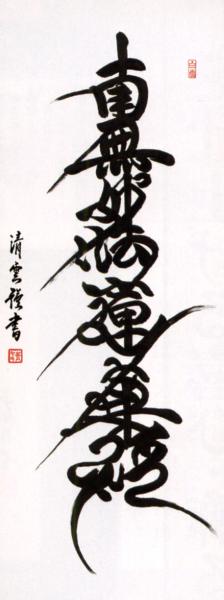 南無妙法蓮華經
清雲書